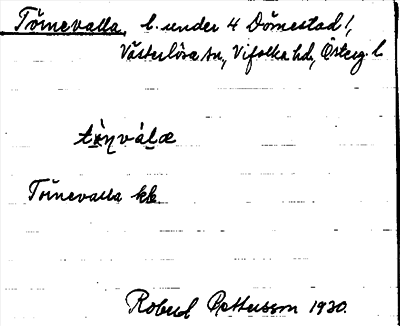 Törnevalla, l. under 4 Dömestad 1,
Västerlösa sn, Vifolka hd, Österg. l
tö̀ṇvàlæ
Törnevalla kk.
Robert Pettersson 1930.